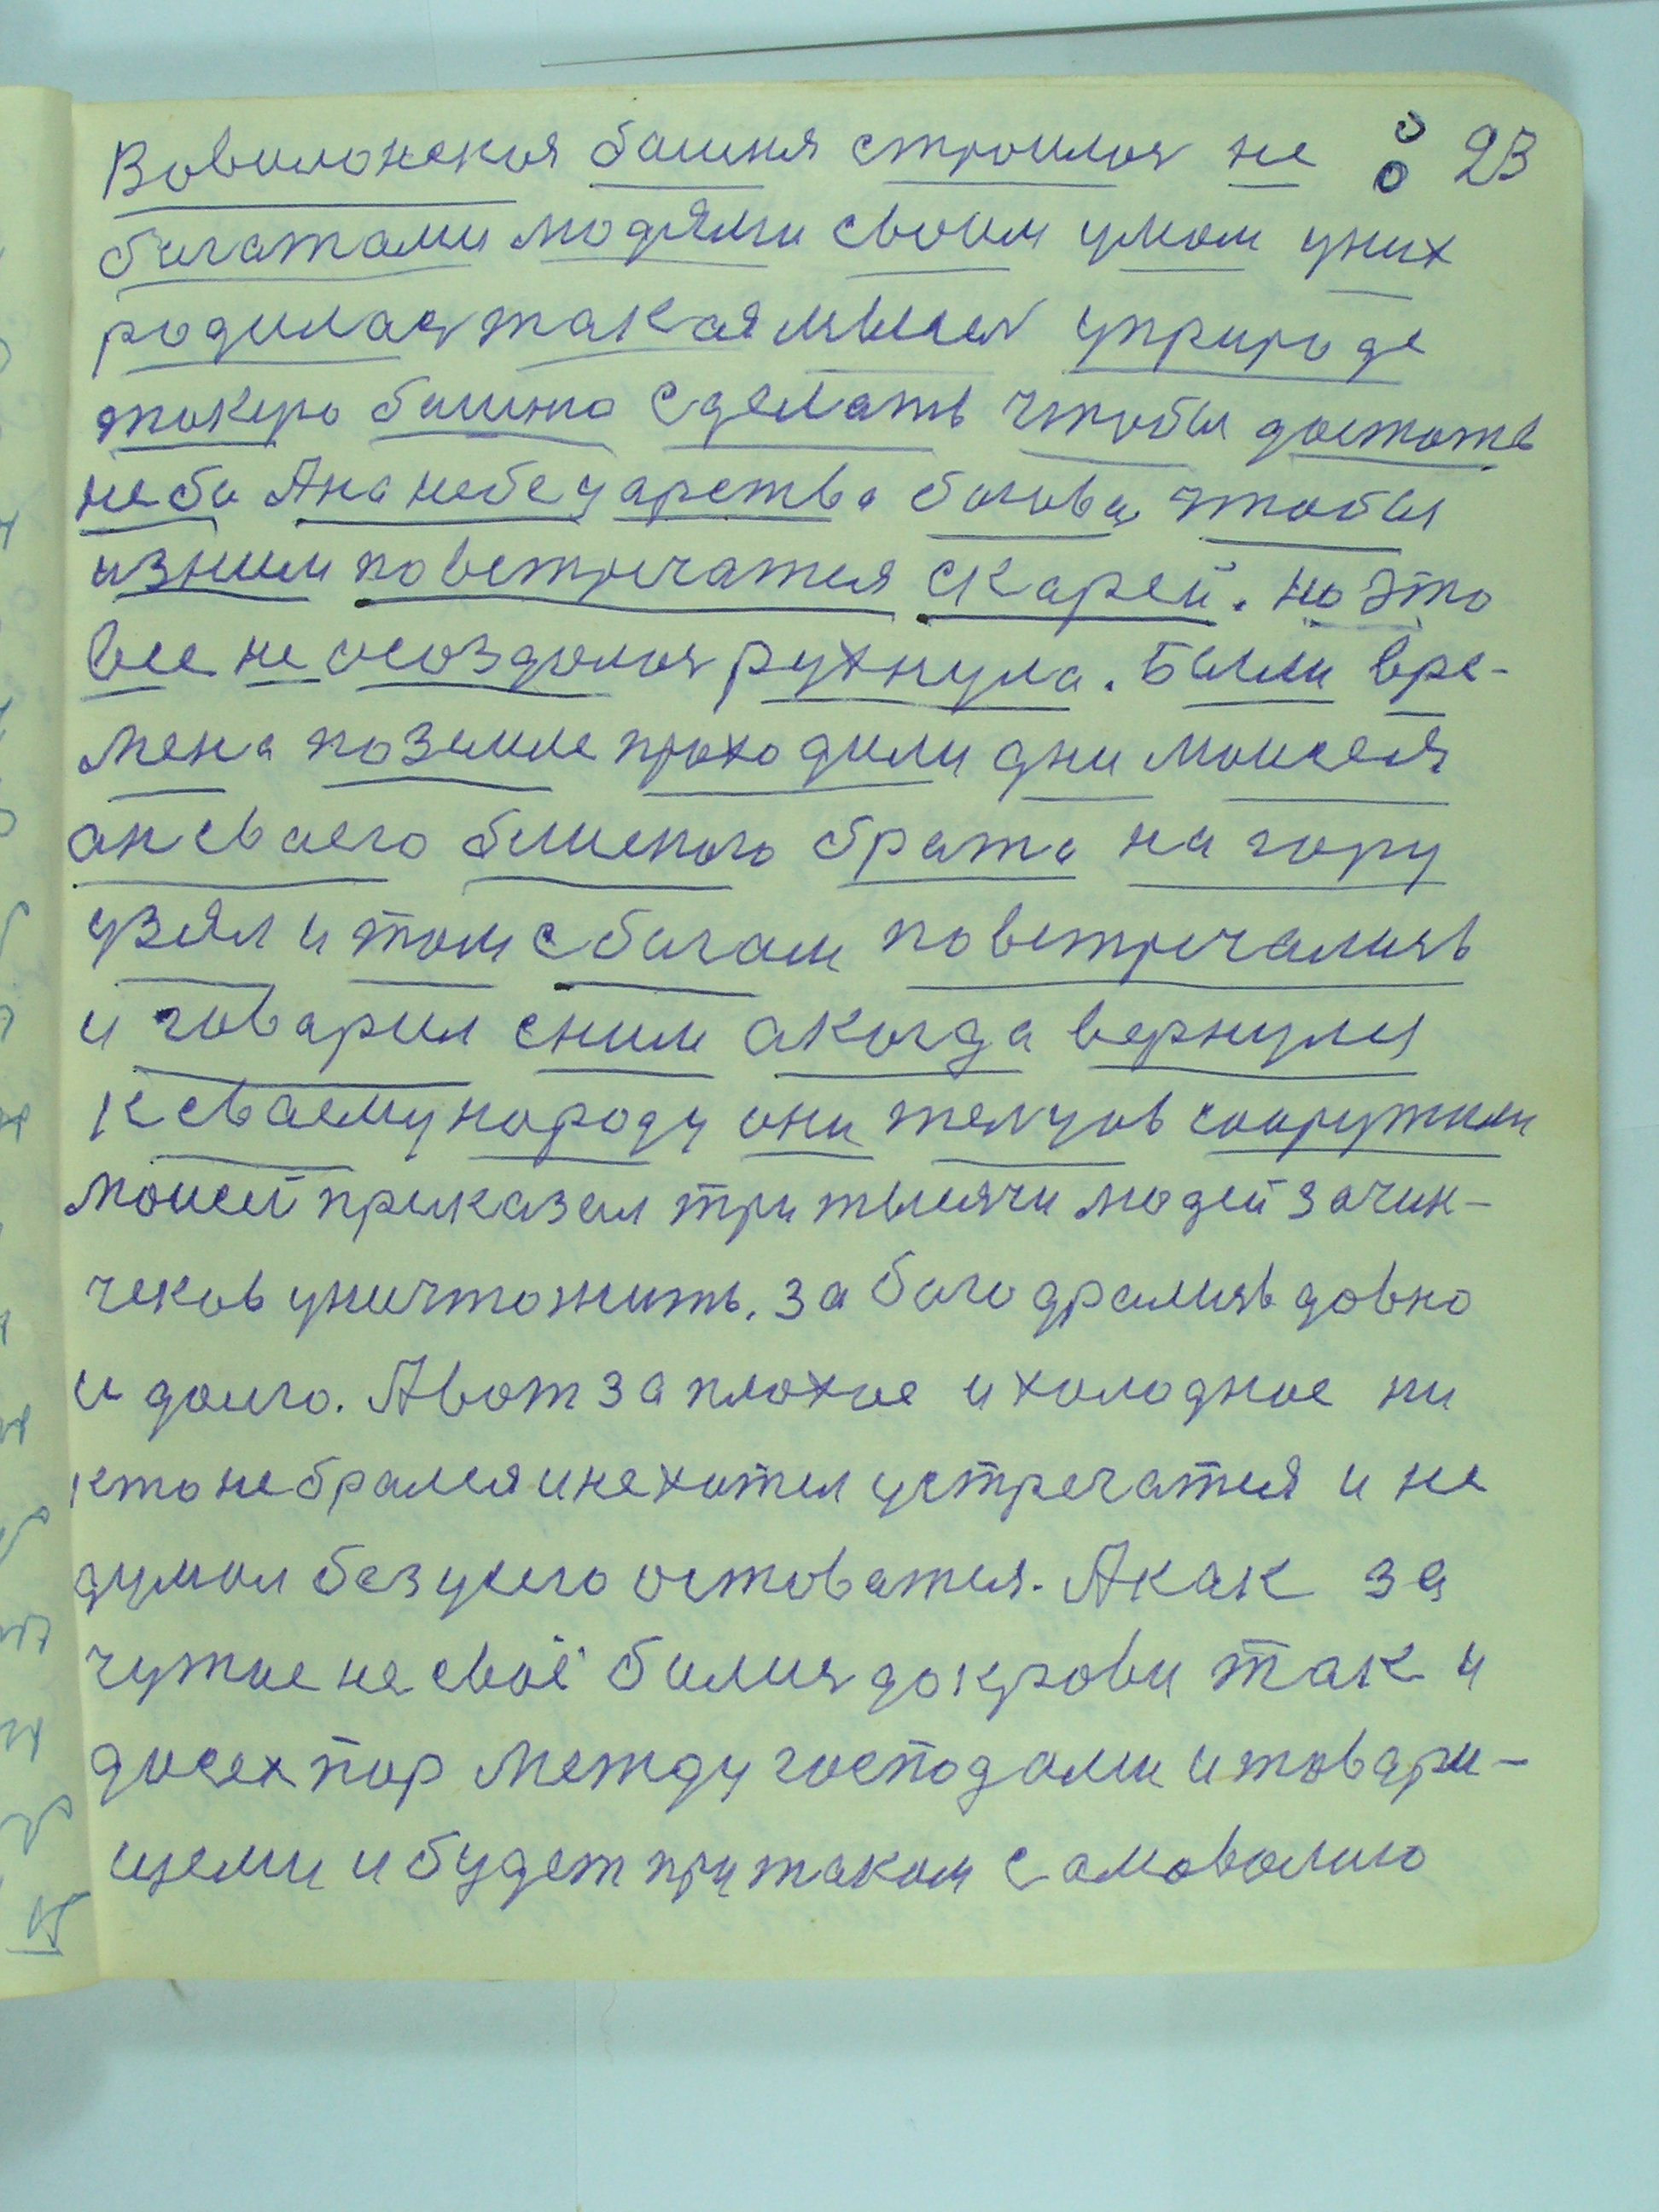 Вовилонская башня строилася не 23
багатами людями своим умом уних
родилася такая мысля уприроде
такую башню сделать чтобы достать
неба Ана небе царства богова чтобы
изним повстречатся скарей. но это
все не осоздалося рухнула. Были вре-
мена поземле проходили дни моисея
ан сваего блиского брата на гору
узял и там с богам повстречались
и говарил сним а когда вернулся
к сваему народу они тельцов сооружили
моисей приказал три тысячи людей зачин-
чеков уничтожить. за бога дрались довно
и долго. Авот за плохое и холодное ни
кто не брался и не хотел устречатся и не
думал без усего остоватся. Акак за
чужое не своё билися до крови так и
досех пор между господами и товари-
щеми и будет при таком самоволию